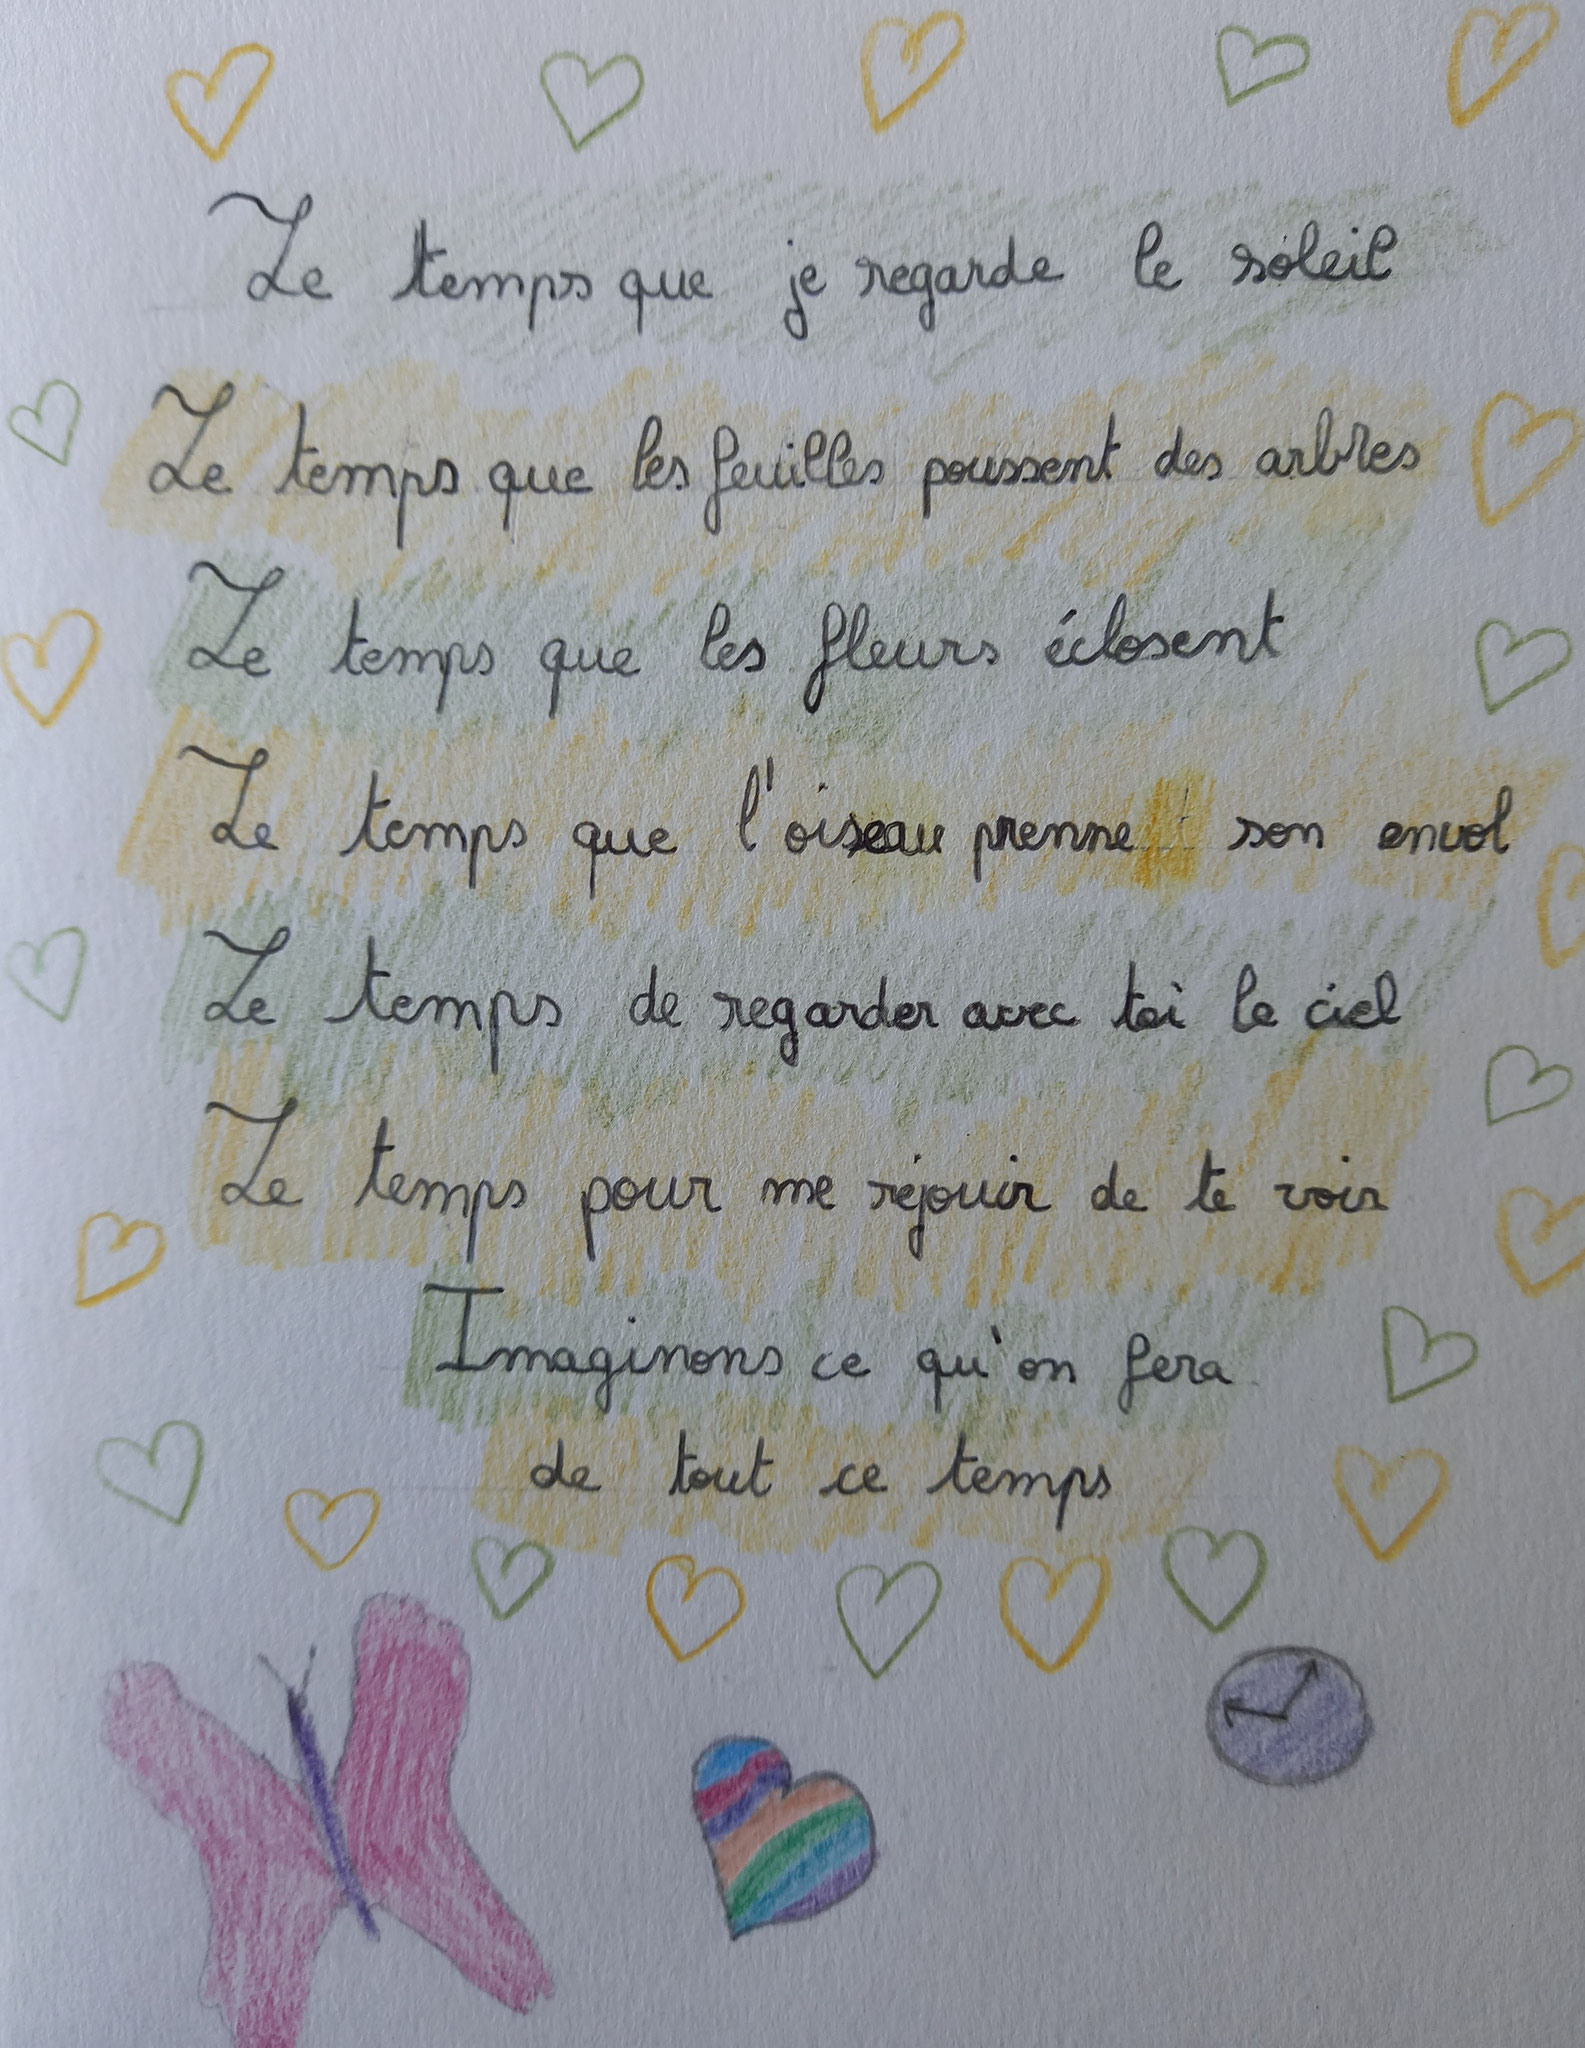 Le temps que je regarde le soleil
Le temps que les feuilles poussent des arbres
Le temps que les fleurs éclosent
Le temps que l'oiseau prenne son envol
Le temps de regarder avec toi le ciel
Le temps pour me réjouir de te voir
Imaginons ce qu'on fera
de tout ce temps